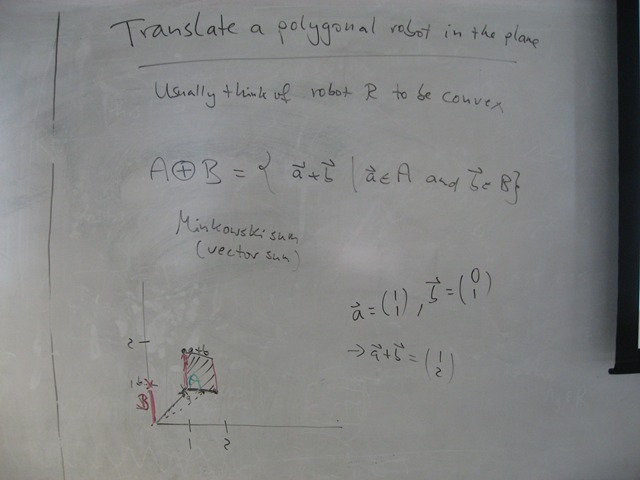 Translate a polygonal robot in the plane
Usually think of robot R to be convex
A⊕B = { a⃗+b⃗ | a⃗∈A and b⃗∈B}
Minkowski sum
(vector sum)
a⃗ = (1 1), b⃗ = (0 1)
→ a⃗+b⃗ = (1 2)
2
a+b
1
b
A
B
1 2